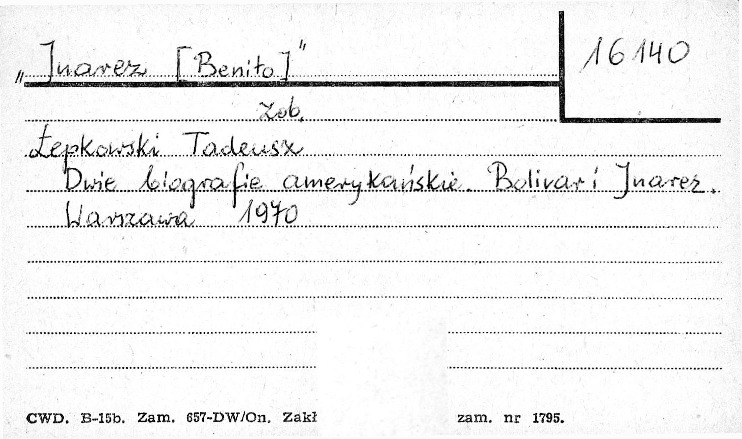 „Juarez [Benito]”
16140
Zob.
Łepkowski Tadeusz
Dwie biografie amerykańskie. Bolivar i Juarez.
Warszawa 1970
CWD. B-15b. Zam. 657-DW/On. Zakł zam. nr 1795.